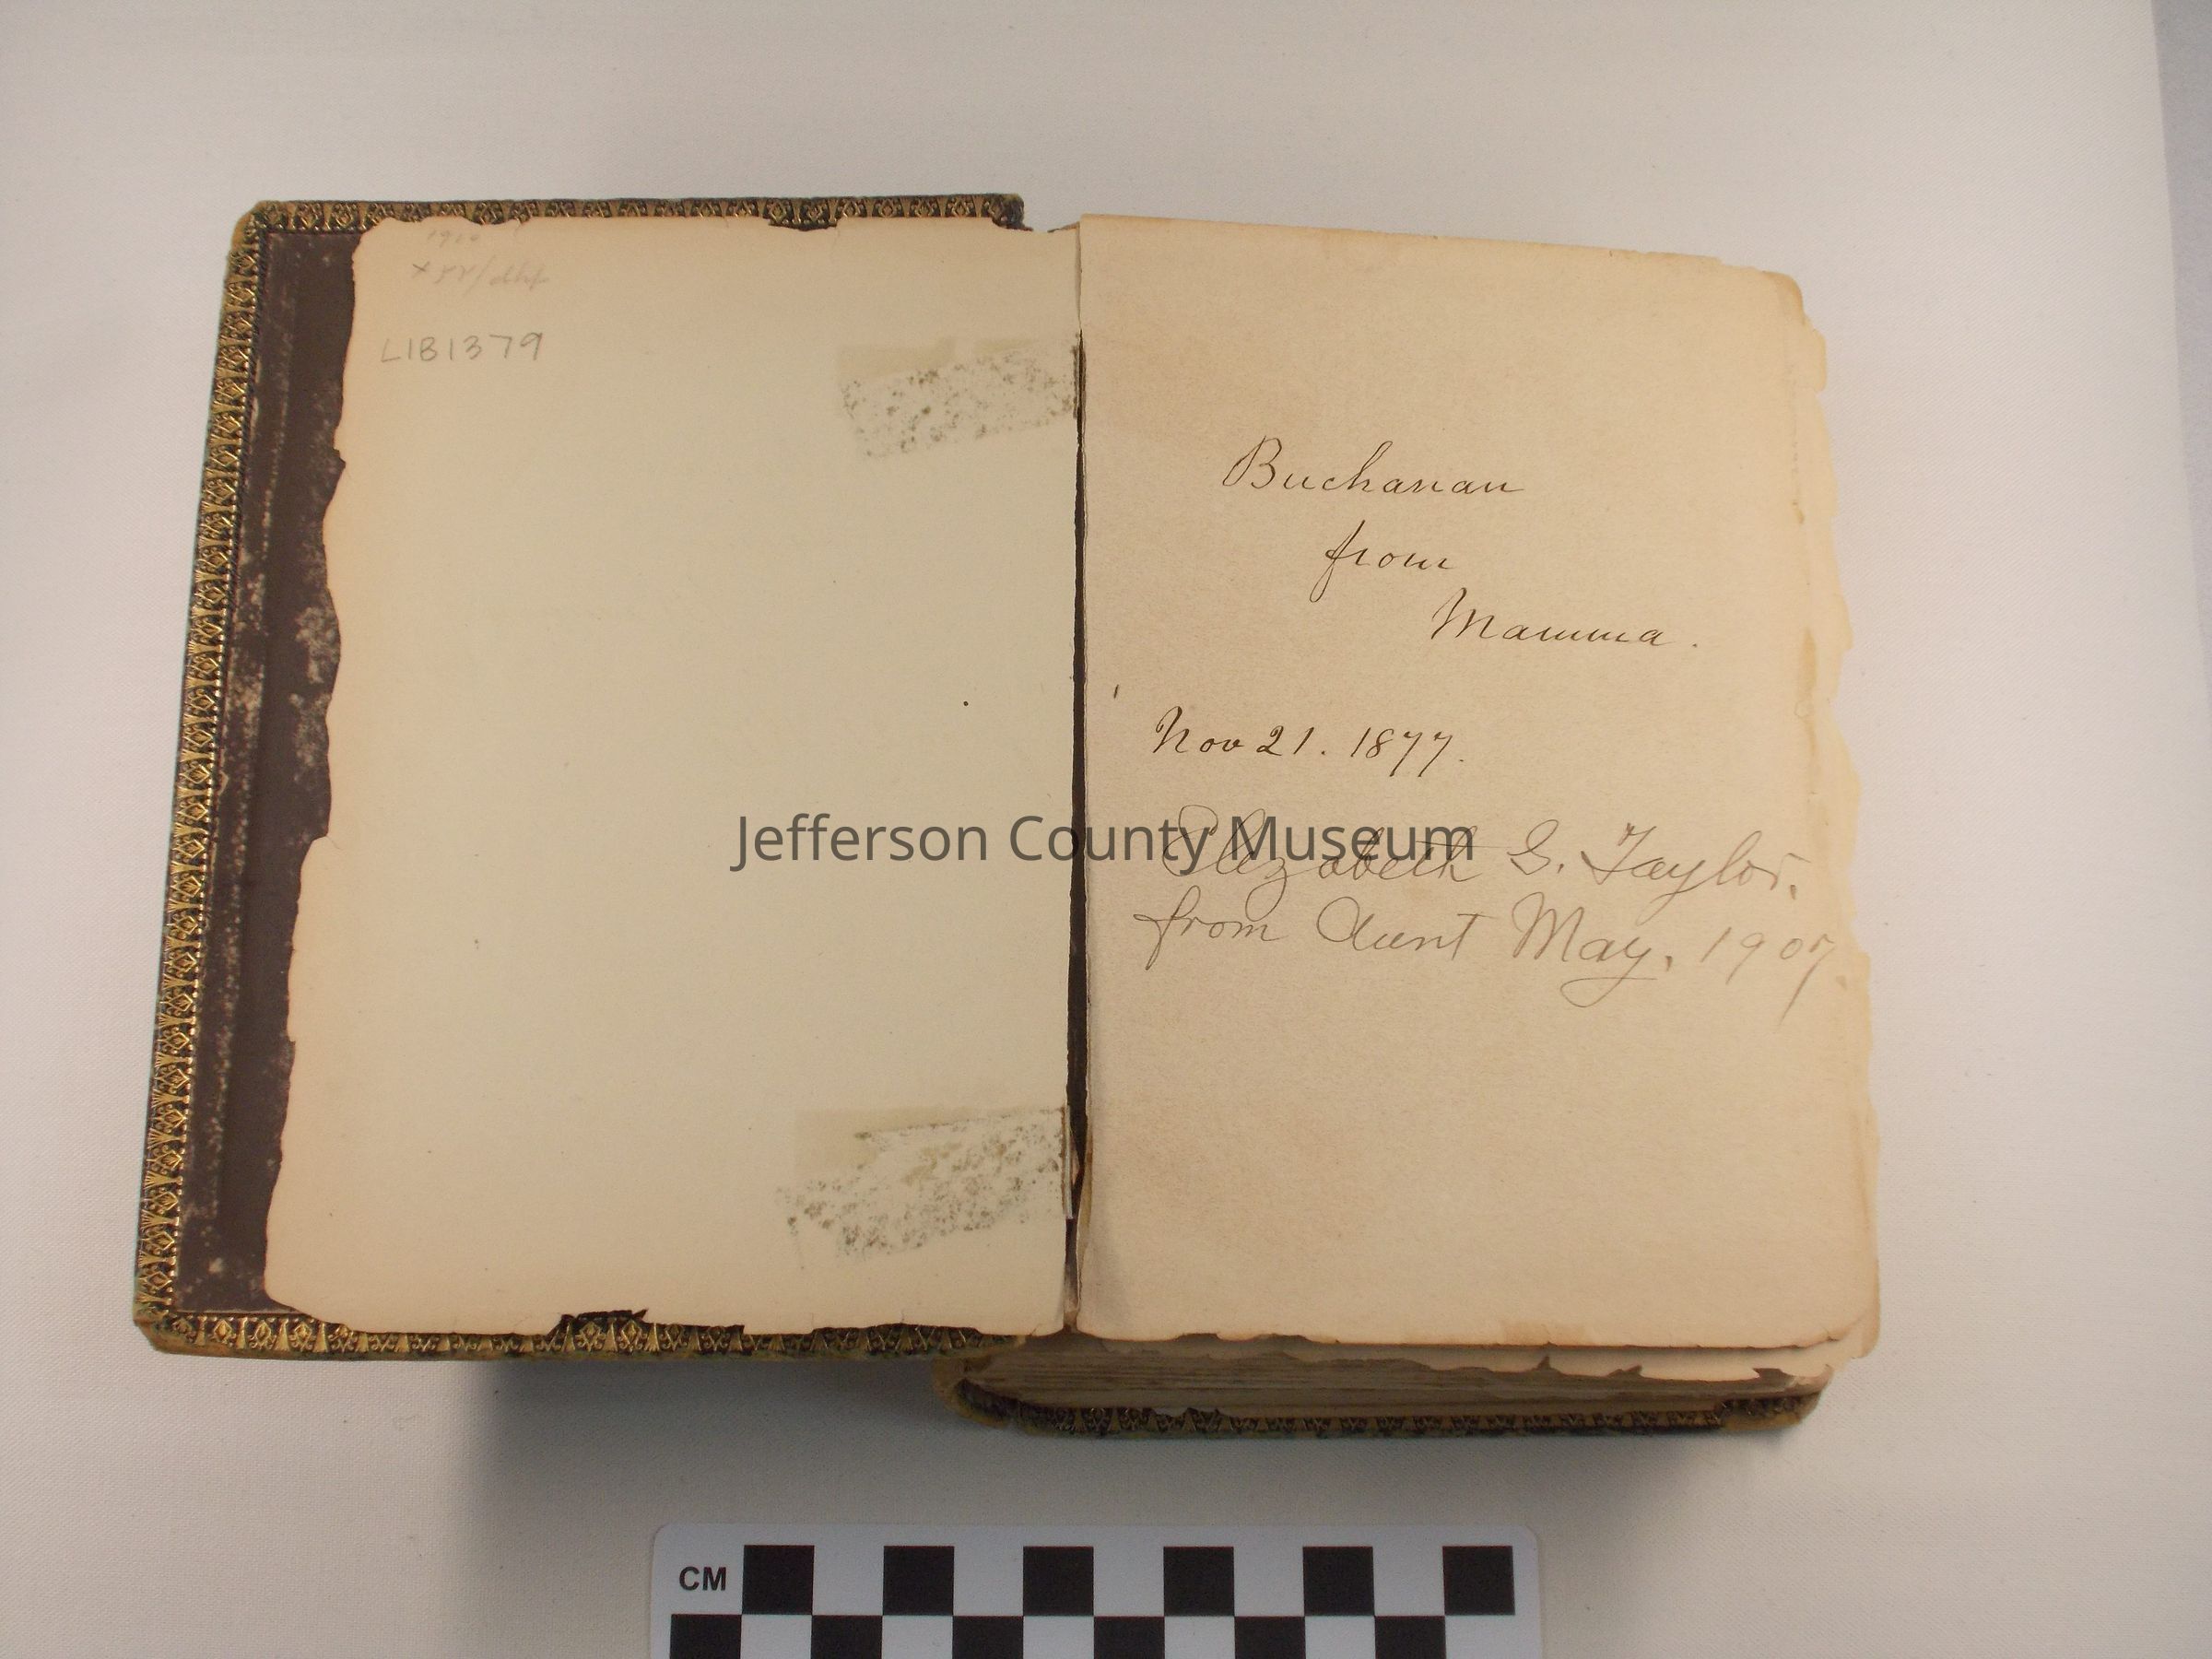 LIB1379
Buchanan
from
Mamma.
Nov 21. 1877.
Jefferson County Museum
Elizabeth G. Taylor.
from Aunt May, 1907
CM